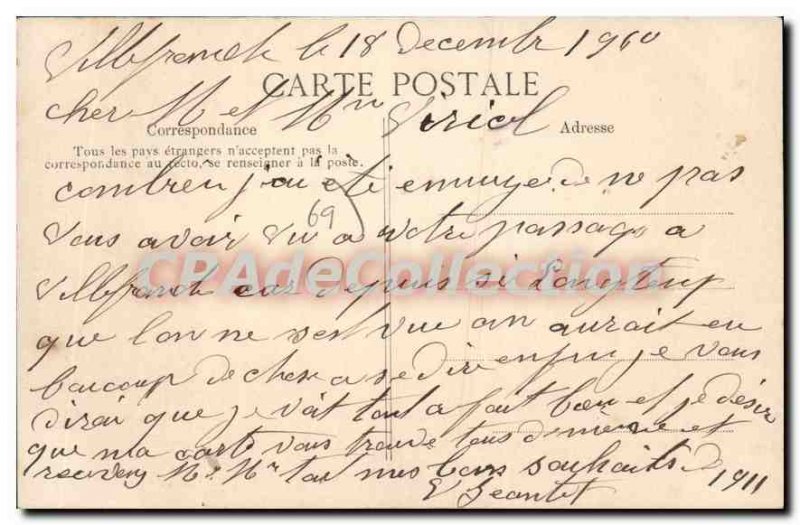 Villefranch le 18 Decembr 1910
CARTE POSTALE
cher M et Mm Viricel
Correspondance
Adresse
Tous les pays étrangers n'acceptent pas la
correspondance au recto, se renseigner à la poste.
combien j'ai été ennuyé de ne pas
69
vous avoir vu a votre passage a
CPAdeCollection
Villefranch car depuis si longtemp
que lon ne sest vue on aurait eu
baucoup de chose a se dire enfin je vous
dirai que je vait tout a fait bien et je désir
que ma carte vous trouve tous de même et
recevez M Mm tous mes bons souhaits de 1911